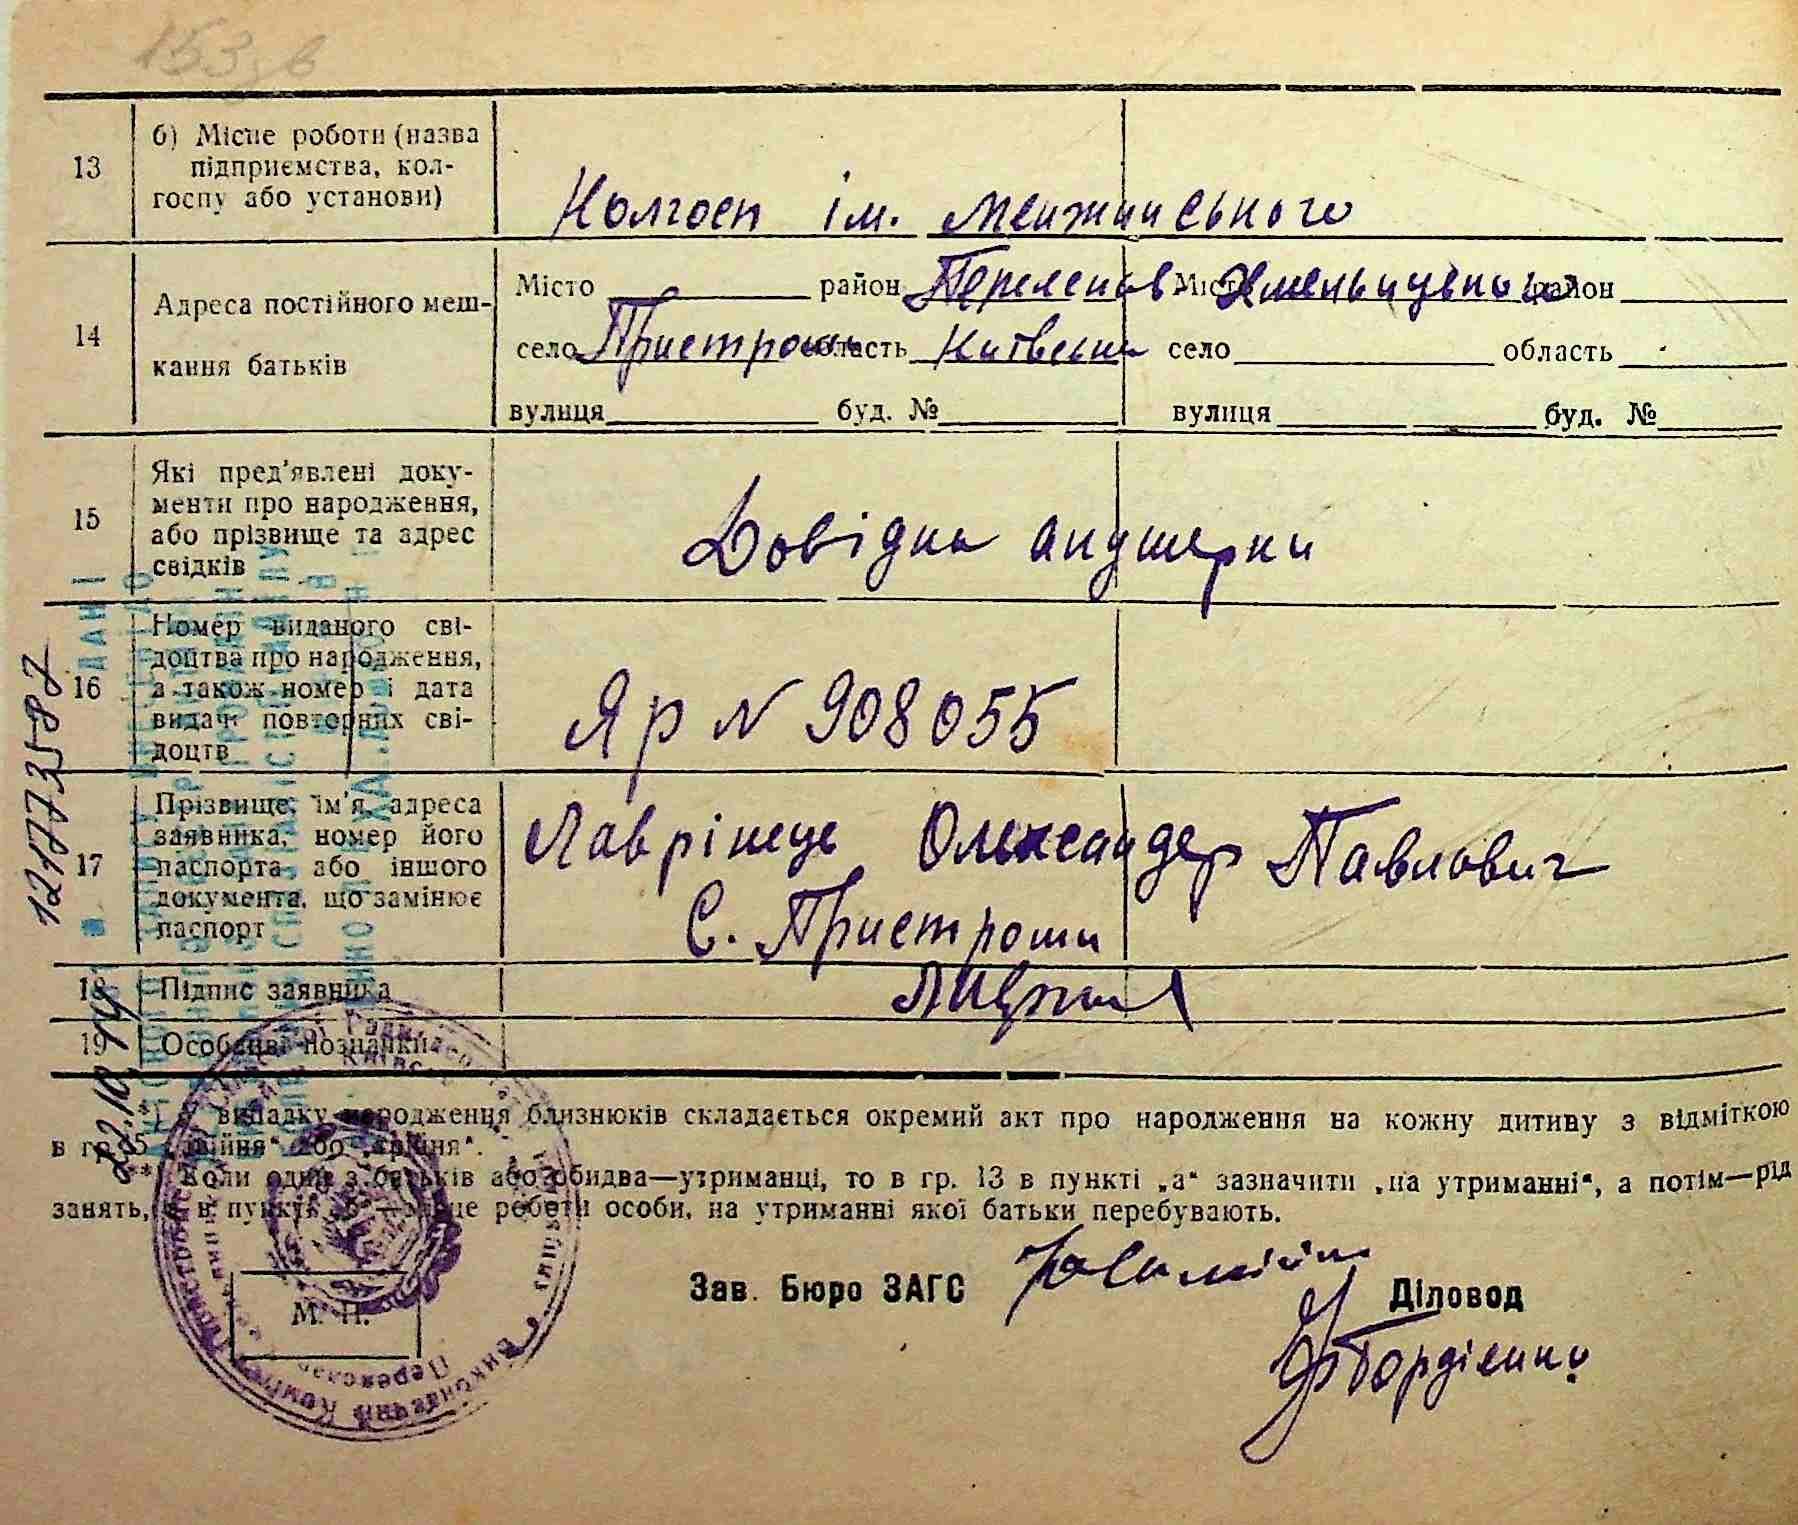 153зв
13
б) Місце роботи (назва
підприємства, кол-
госпу або установи)
Колгосп ім. Менжинського
14
Адреса постійного меш-
кання батьків
Місто район Переяслав Хмельницького Місто район
село Пристроми область Київська село область
вулиця буд. № вулиця буд. №
15
Які пред'явлені доку-
менти про народження,
або прізвище та адрес
свідків
Довідка акушерки
16
Номер виданого сві-
доцтва про народження,
а також номер і дата
видачі повторних сві-
доцтв
Яр N 908055
17
Прізвище, ім'я, адреса
заявника, номер його
паспорта або іншого
документа, що замінює
паспорт
Лаврінець Олександер Павлович
С. Пристроми
18
Підпис заявника
19
Особливі познанки
*) У випадку народження близнюків складається окремий акт про народження на кожну дитину з відміткою
в гр. 5 „двійня“ або „трійня“.
**) Коли один з батьків або обидва—утриманці, то в гр. 13 в пункті „а“ зазначити „на утриманні“, а потім—рід
занять, а в пункті „б“—місце роботи особи, на утриманні якої батьки перебувають.
Зав. Бюро ЗАГС
Діловод
М. П.
121773587
22.10.14
ДАНІ
Виконавчий Комітет